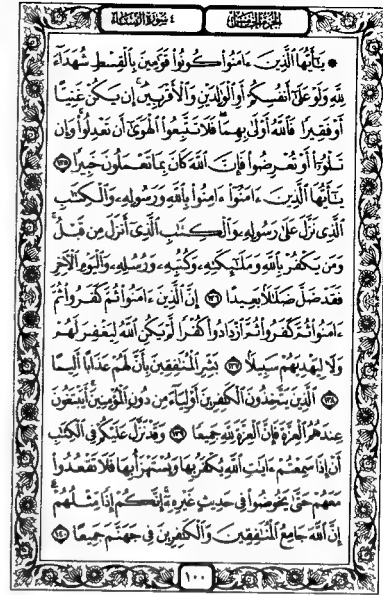 الجزء الخامس
٤ سورة النساء
۞ يَٰٓأَيُّهَا ٱلَّذِينَ ءَامَنُواْ كُونُواْ قَوَّٰمِينَ بِٱلۡقِسۡطِ شُهَدَآءَ
لِلَّهِ وَلَوۡ عَلَىٰٓ أَنفُسِكُمۡ أَوِ ٱلۡوَٰلِدَيۡنِ وَٱلۡأَقۡرَبِينَۚ إِن يَكُنۡ غَنِيًّا
أَوۡ فَقِيرٗا فَٱللَّهُ أَوۡلَىٰ بِهِمَاۖ فَلَا تَتَّبِعُواْ ٱلۡهَوَىٰٓ أَن تَعۡدِلُواْۚ وَإِن
تَلۡوُۥٓاْ أَوۡ تُعۡرِضُواْ فَإِنَّ ٱللَّهَ كَانَ بِمَا تَعۡمَلُونَ خَبِيرٗا ١٣٥
يَٰٓأَيُّهَا ٱلَّذِينَ ءَامَنُوٓاْ ءَامِنُواْ بِٱللَّهِ وَرَسُولِهِۦ وَٱلۡكِتَٰبِ
ٱلَّذِي نَزَّلَ عَلَىٰ رَسُولِهِۦ وَٱلۡكِتَٰبِ ٱلَّذِيٓ أَنزَلَ مِن قَبۡلُۚ
وَمَن يَكۡفُرۡ بِٱللَّهِ وَمَلَٰٓئِكَتِهِۦ وَكُتُبِهِۦ وَرُسُلِهِۦ وَٱلۡيَوۡمِ ٱلۡأٓخِرِ
فَقَدۡ ضَلَّ ضَلَٰلَۢا بَعِيدًا ١٣٦ إِنَّ ٱلَّذِينَ ءَامَنُواْ ثُمَّ كَفَرُواْ ثُمَّ
ءَامَنُواْ ثُمَّ كَفَرُواْ ثُمَّ ٱزۡدَادُواْ كُفۡرٗا لَّمۡ يَكُنِ ٱللَّهُ لِيَغۡفِرَ لَهُمۡ
وَلَا لِيَهۡدِيَهُمۡ سَبِيلَۢا ١٣٧ بَشِّرِ ٱلۡمُنَٰفِقِينَ بِأَنَّ لَهُمۡ عَذَابًا أَلِيمًا
١٣٨ ٱلَّذِينَ يَتَّخِذُونَ ٱلۡكَٰفِرِينَ أَوۡلِيَآءَ مِن دُونِ ٱلۡمُؤۡمِنِينَۚ أَيَبۡتَغُونَ
عِندَهُمُ ٱلۡعِزَّةَ فَإِنَّ ٱلۡعِزَّةَ لِلَّهِ جَمِيعٗا ١٣٩ وَقَدۡ نَزَّلَ عَلَيۡكُمۡ فِي ٱلۡكِتَٰبِ
أَنۡ إِذَا سَمِعۡتُمۡ ءَايَٰتِ ٱللَّهِ يُكۡفَرُ بِهَا وَيُسۡتَهۡزَأُ بِهَا فَلَا تَقۡعُدُواْ
مَعَهُمۡ حَتَّىٰ يَخُوضُواْ فِي حَدِيثٍ غَيۡرِهِۦٓ إِنَّكُمۡ إِذٗا مِّثۡلُهُمۡۗ
إِنَّ ٱللَّهَ جَامِعُ ٱلۡمُنَٰفِقِينَ وَٱلۡكَٰفِرِينَ فِي جَهَنَّمَ جَمِيعًا ١٤٠
١٠٠